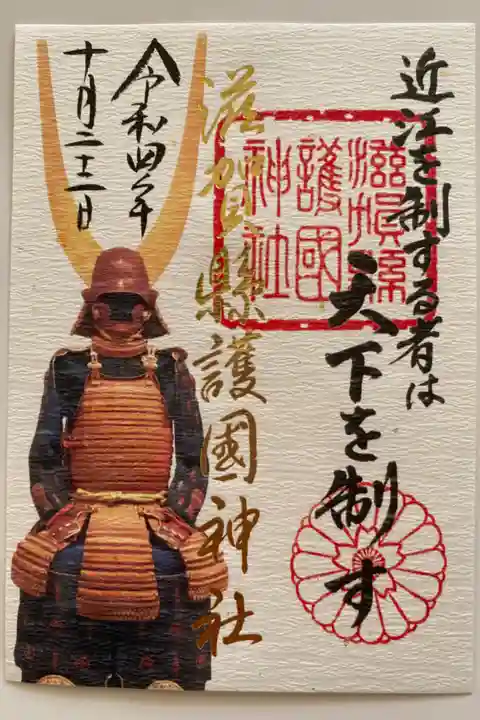 近江を制する者は
天下を制す
滋賀縣
護國
神社
滋賀縣護國神社
令和四年
十月二十二日